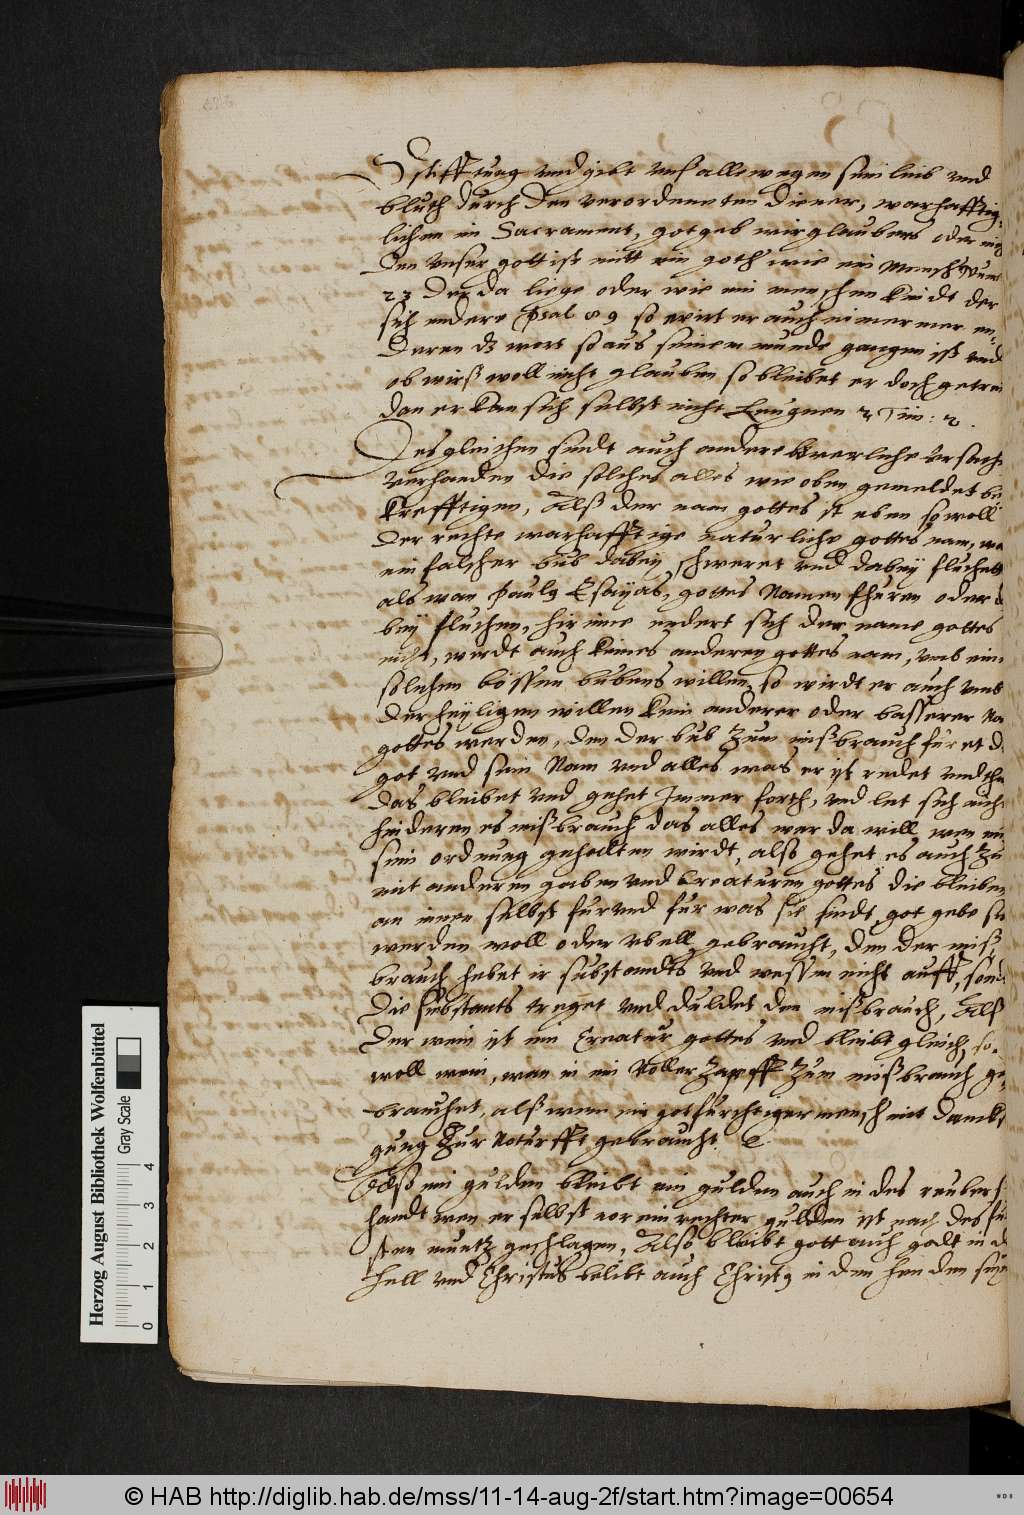 stifftung vnd gibt vnß allewegen sein leib vnd
bluth durch den verordenneten diener, warhafftig-
lichen im Sacrament, got geb wir glaubens oder nig
den vnser gott ist nitt ein goth wie ein mensch Num
23 der da liege oder wie ein menschen kindt der
sich endere Psal 89 so evirt er auch nimermer en-
deren dz wort so aus seinem munde gangen ist vnd
ob wirß woll nicht glauben so bleibet er doch getrew
dan er kan sich selbst nicht leugnen 2 Tim: 2.
Desgleichen sindt auch andere ursach
verhanden die solches alles wie oben gemeldet be
krefftigen, Alß der nam gottes ist eben so woll
der rechte warhafftige naturliche gottes nam, wa
ein falscher bub dabey schweret vnd dabey fluchett
als wan Paulus Esayas, gottes Namen fhuren oder da
bey fluchen, hir inne endert sich der name gottes
nicht, wirdt auch keines anderen gottes nam, vmb eines
solchen bössen bubens willen, so wirdt er auch vmb
der heyligen willen kein anderer oder basserer Na
gottes werden, den der bub zum mißbrauch füret d
got vnd sein Nam vnd alles was er ist redet vnd thu
das bleibet vnd gehet Immer forth, vnd let sich nich
hinderen es mißbrauch das alles wer da will wen nu
sein ordnung gehaltten wirdt, also gehet es auch zu
mit anderen gaben vnd Creaturen gottes die bleiben
an innen selbst fur vnd fur was sie sindt, got gebe sie
werden woll oder vbell gebraucht, den der miß
brauch hebet ir substandts vnd wessen nicht auff, sond
die substants treget vnd duldet den mißbrauch, Alß
der wein ist ein Creatur gottes vnd bleibt gleich so-
woll wein, wan in ein voller Zapff zum mißbrauch ge-
brauchet, alß wenn ein gotfurchtiger mensch mit danks
gung zur Noturfft gebraucht
Alß ein gulden bleibt ein gulden auch in des reubers
handt wen er selbst nor ein rechter gulden ist nach des fur
sten muntz geschlagen, Also bleibt gott auch godt in d
hell vnd Christus belibt auch Christus in den henden seyn
© HAB http://diglib.hab.de/mss/11-14-aug-2f/start.htm?image=00654
Herzog August Bibliothek Wolfenbüttel
Gray Scale
0 1 2 3 4